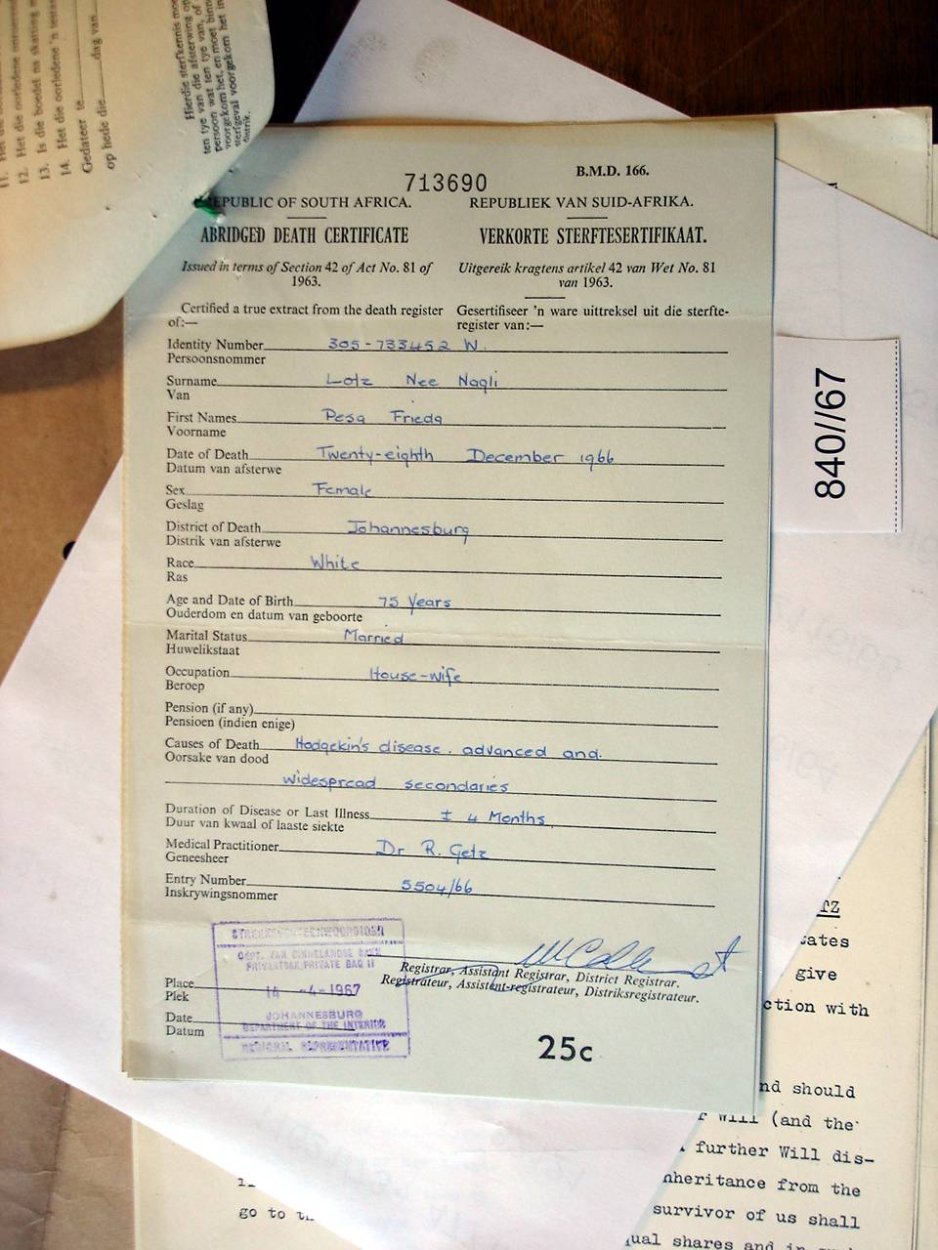 11. Het die
12. Het die oorledene
13. Is die boedel na skatting m
14. Het die oorledene 'n testam
Gedateer te
op hede die dag van
Hierdie sterfkennis moe
ten tye van die afsterwing op
persoon wat ten tye van, of
voorgekom het, en moet binn
sterfgeval voorgekom het in
distrik.
B.M.D. 166.
713690
REPUBLIC OF SOUTH AFRICA.
REPUBLIEK VAN SUID-AFRIKA.
ABRIDGED DEATH CERTIFICATE
VERKORTE STERFTESERTIFIKAAT.
Issued in terms of Section 42 of Act No. 81 of
1963.
Uitgereik kragtens artikel 42 van Wet No. 81
van 1963.
Certified a true extract from the death register
of:—
Gesertifiseer 'n ware uittreksel uit die sterfte-
register van:—
Identity Number 305-733452 W.
Persoonsnommer
Surname Lotz Nee Nagli
Van
First Names Pesa Frieda
Voorname
Date of Death Twenty-eighth December 1966
Datum van afsterwe
Sex Female
Geslag
District of Death Johannesburg
Distrik van afsterwe
Race White
Ras
Age and Date of Birth 75 Years
Ouderdom en datum van geboorte
Marital Status Married
Huwelikstaat
Occupation House-wife
Beroep
Pension (if any)
Pensioen (indien enige)
Causes of Death Hodgekin's disease. advanced and.
Oorsake van dood
widespread secondaries
Duration of Disease or Last Illness ± 4 Months
Duur van kwaal of laaste siekte
Medical Practitioner Dr R. Getz
Geneesheer
Entry Number 5504/66
Inskrywingsnommer
DEPT. VAN BINNELANDSE SAKE
PRIVAATSAK/PRIVATE BAG 11
14 -4- 1967
JOHANNESBURG
DEPARTMENT OF THE INTERIOR
REGIONAL REPRESENTATIVE
Place
Plek
Date
Datum
Registrar, Assistant Registrar, District Registrar.
Registrateur, Assistent-registrateur, Distriksregistrateur.
25c
840//67
TZ
tates
give
ction with
nd should
r Will (and the
further Will dis-
nheritance from the
go to th
survivor of us shall
qual shares and in